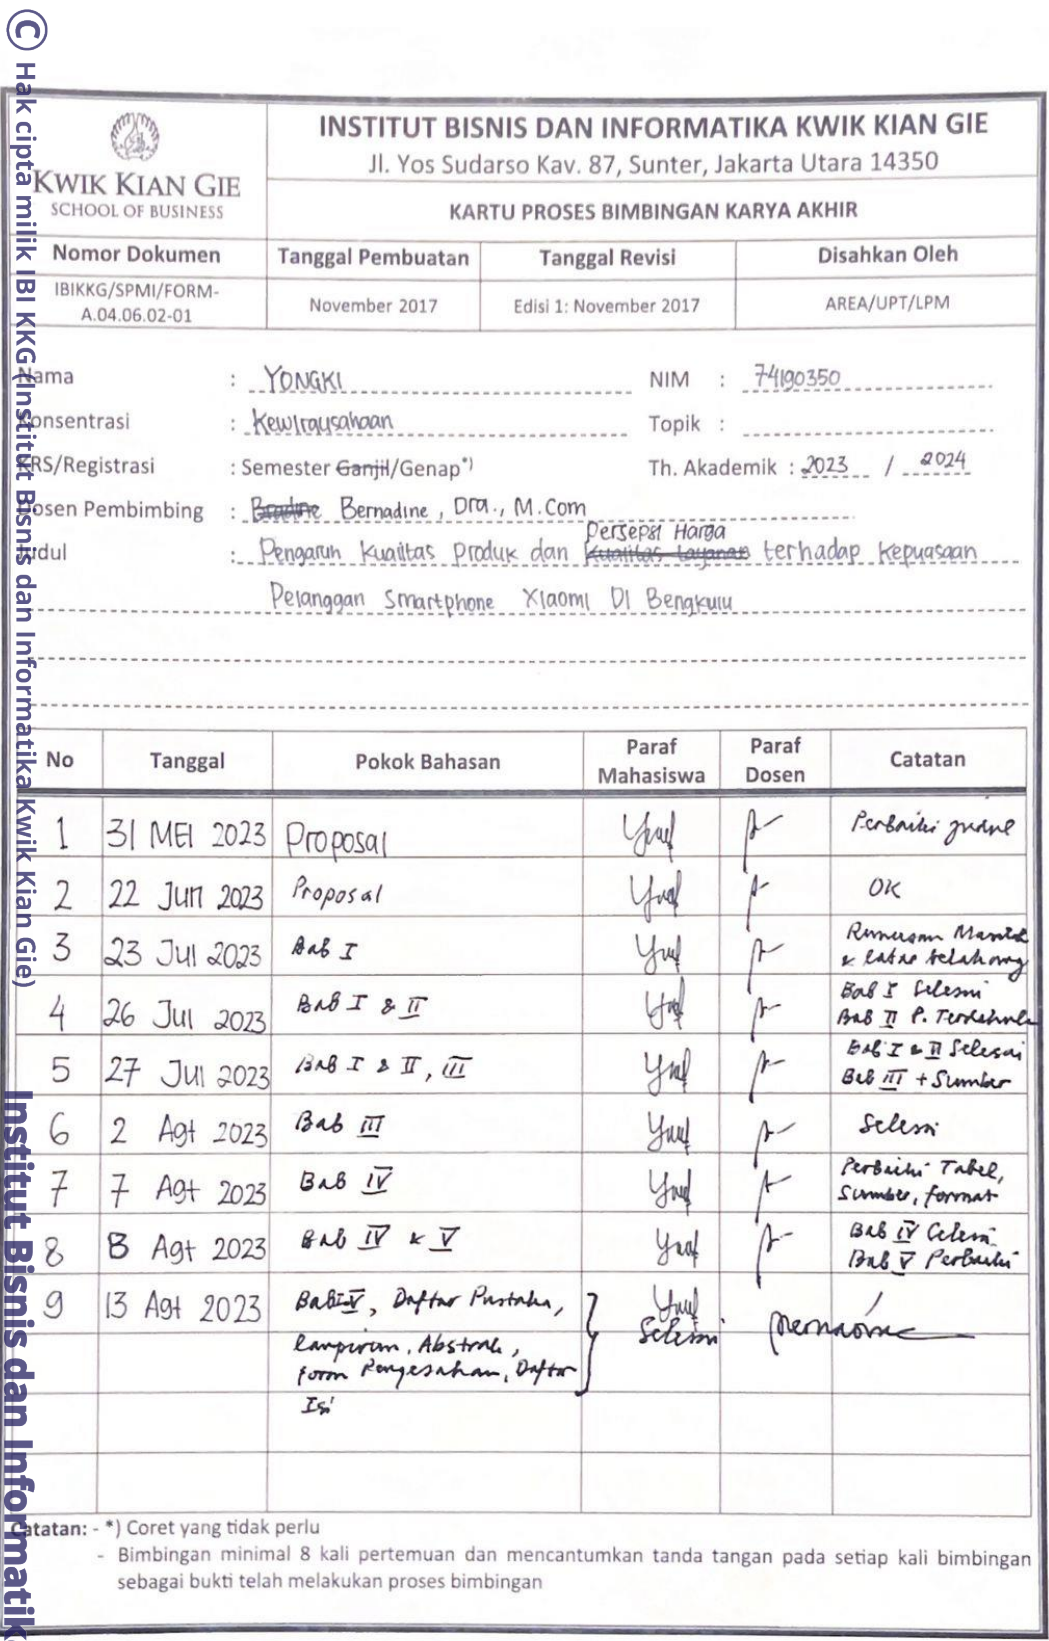 © Hak cipta milik IBI KKG (Institut Bisnis dan Informatika Kwik Kian Gie)
Institut Bisnis dan Informatik
KWIK KIAN GIE
SCHOOL OF BUSINESS
INSTITUT BISNIS DAN INFORMATIKA KWIK KIAN GIE
Jl. Yos Sudarso Kav. 87, Sunter, Jakarta Utara 14350
KARTU PROSES BIMBINGAN KARYA AKHIR
Nomor Dokumen Tanggal Pembuatan Tanggal Revisi Disahkan Oleh
IBIKKG/SPMI/FORM-
A.04.06.02-01 November 2017 Edisi 1: November 2017 AREA/UPT/LPM
Nama : YONGKI NIM : 74190350
Konsentrasi : Kewirausahaan Topik :
KRS/Registrasi : Semester Ganjil/Genap*) Th. Akademik : 2023 / 2024
Dosen Pembimbing : Bernadine, Dra., M.Com
Persepsi Harga
Judul : Pengaruh Kualitas Produk dan Kualitas Layanan terhadap Kepuasaan
Pelanggan Smartphone Xiaomi Di Bengkulu
No Tanggal Pokok Bahasan Paraf Mahasiswa Paraf Dosen Catatan
1 31 MEI 2023 Proposal Perbaiki
2 22 Jun 2023 Proposal OK
3 23 Jul 2023 Bab I Rumusan Masalah
& latar belakang
4 26 Jul 2023 Bab I & II Bab I Selesai
Bab II P. Terdahulu
5 27 Jul 2023 Bab I & II, III Bab I & II Selesai
Bab III + Sumber
6 2 Agt 2023 Bab III Selesai
7 7 Agt 2023 Bab IV Perbaiki Tabel,
Sumber, format
8 8 Agt 2023 Bab IV & V Bab IV Selesai
Bab V Perbaiki
9 13 Agt 2023 Bab I-V, Daftar Pustaka, Selesai
Lampiran, Abstrak,
Form Pengesahan, Daftar
Isi
Catatan: - *) Coret yang tidak perlu
- Bimbingan minimal 8 kali pertemuan dan mencantumkan tanda tangan pada setiap kali bimbingan
sebagai bukti telah melakukan proses bimbingan